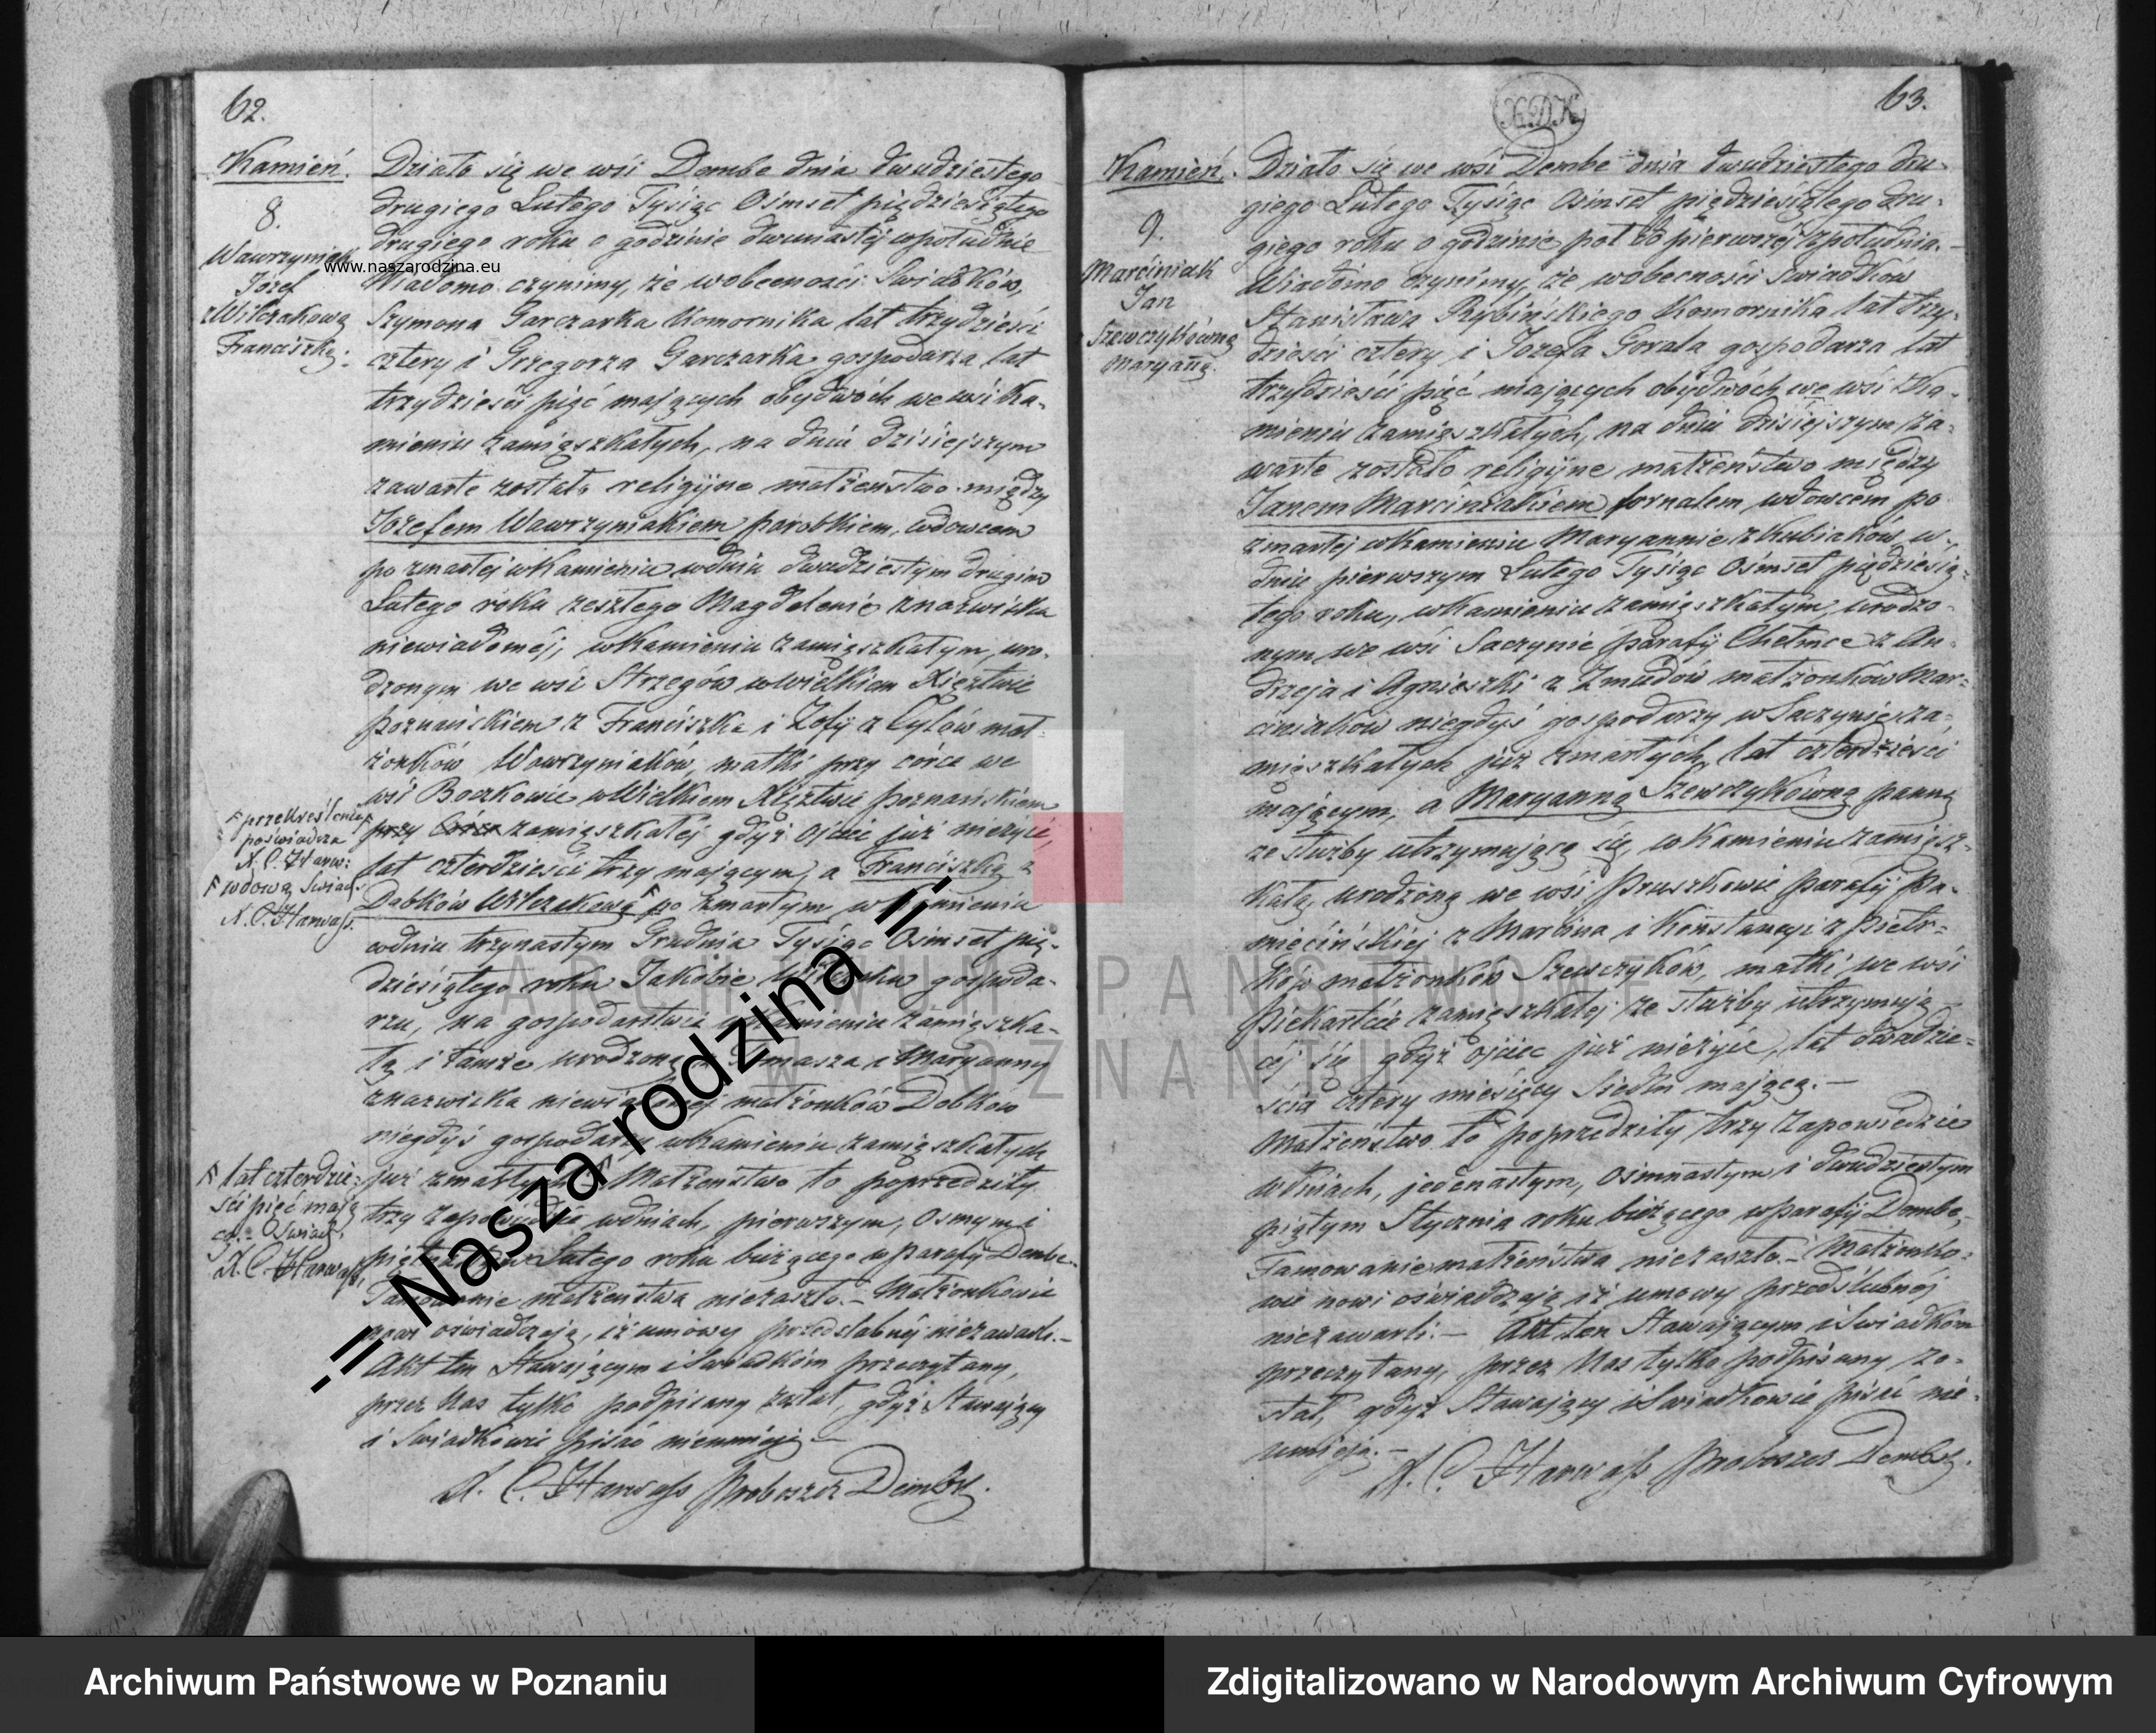 62.
Kamień.
8.
Wawrzyniak
Józef
z Wilczakową
Franciszką.
Działo się we wsi Dembe dnia dwudziestego
drugiego Lutego Tysiąc Osmset pięćdziesiątego
drugiego roku o godzinie dwunastej wpołudnie
www.naszarodzina.eu
Wiadomo czynimy, że wobecności Swiadków,
Szymona Garczarka Komornika lat trzydzieści
cztery i Grzegorza Garczarka gospodarza lat
trzydzieści pięć mających obydwóch we wsi Ka-
mieniu zamięszkałych, na dniu dzisiejszym
zawarte zostało religijne małżeństwo między
Józefem Wawrzyniakiem parobkiem, wdowcem
po zmarłej w Kamieniu wdniu dwudziestym drugim
Lutego roku zeszłego Magdalenie z nazwiska
niewiadomej, w Kamieniu zamięszkałym, uro-
dzonym we wsi Strzegów w Wielkiem Xięztwie
poznańskiem z Franciszka i Zofij z Cylów mał-
żonków Wawrzyniaków, matki przy córce we
wsi Boczkowie w Wielkiem Xięztwie poznańskiem
przy córce zamięszkałej gdyż ojciec już nieżyie,
lat czterdzieści trzy mającym, a Franciszką z
Dąbków Wilczakową F po zmarłym w Kamieniu
wdniu trzynastym Grudnia Tysiąc Osmset pięć-
dziesiątego roku Jakóbie Wilczaku gospoda-
rzu, na gospodarstwie w Kamieniu zamięszka-
łą i tamże urodzoną z Tomasza i Maryanny
z nazwiska niewiadomej małżonków Dobków
niegdyś gospodarzy w Kamieniu zamięszkałych
już zmarłych F Małżeństwo to poprzedziły
trzy zapowiedzie wdniach, pierwszym, Osmym i
piętnastym Lutego roku bieżącego w parafij Dembe.
Tamowanie małżeństwa niezaszło. – Małżonkowie
nowi oświadczają, iż umowy przedślubnéj niezawarli. –
Akt ten Stawającym i Swiadkóm przeczytany,
przez Nas tylko podpisany został, gdyż Stawający
i Swiadkowie pisać nieumieją –
X. C. Harwass Proboszcz Dembsk.
F przekreślenie
poświadcza
X. C. Harw:
F wdową Swiad.
X. C. Harwass.
F lat czterdzie-
ści pięć mają-
cą. – Oswiad.
X. C. Harwass
-= Nasza rodzina =-
K.D.K.
63.
Kamień.
9.
Marciniak
Jan
Szewczykówną
Maryanną.
Działo się we wsi Dembe dnia dwudziestego dru-
giego Lutego Tysiąc Osmset pięćdziesiątego dru-
giego roku o godzinie pół do pierwszej zpołudnia. –
Wiadomo czynimy, że wobecności Swiadków
Stanisława Rybińskiego Komornika lat trzy-
dzieści cztery i Jozefa Gorala gospodarza lat
trzydzieści pięć mających obydwóch we wsi Ka-
mieniu zamięszkałych, na dniu dzisiejszym za-
warte zostało religijne małżeństwo między
Janem Marciniakiem fornalem wdowcem po
zmarłej w Kamieniu Maryannie z Kubiaków w
dniu pierwszym Lutego Tysiąc Osmset pięćdziesią-
tego roku, w Kamieniu zamięszkałym, urodzo-
nym we wsi Saczynie parafij Chełmce z An-
drzeja i Agnieszki z Zmudów małżonków Mar-
ciniaków niegdyś gospodarzy w Saczynie za-
mięszkałych już zmarłych, lat czterdzieści
mającym, a Maryanną Szewczykówną panną
ze służby utrzymującą się, w Kamieniu zamięsz-
kałą, urodzoną we wsi Pruszkowie parafij Ka-
mięcińskiej z Marcina i Konstancyi z Pietr-
ków małżonków Szewczyków, matki we wsi
Piekarcie zamięszkałej ze służby utrzymują-
cej się gdyż ojciec już nieżyie, lat dwadzie-
ścia cztery miesięcy siedm mającą. –
Małżeństwo to poprzedziły trzy zapowiedzie
wdniach, jedenastym, Osimnastym i dwudziestym
piątym Stycznia roku bieżącego w parafij Dembe,
Tamowanie małżeństwa niezaszło. – Małżonko-
wie nowi oświadczają iż umowy przedślubnéj
niezawarli. – Akt ten Stawającym i Swiadkom
przeczytany, przez Nas tylko podpisany zo-
stał, gdyż Stawający i Swiadkowie pisać nie-
umieją. –
X. C. Harwass Proboszcz Dembsk.
ARCHIWUM PAŃSTWOWE
W POZNANIU
Archiwum Państwowe w Poznaniu
Zdigitalizowano w Narodowym Archiwum Cyfrowym